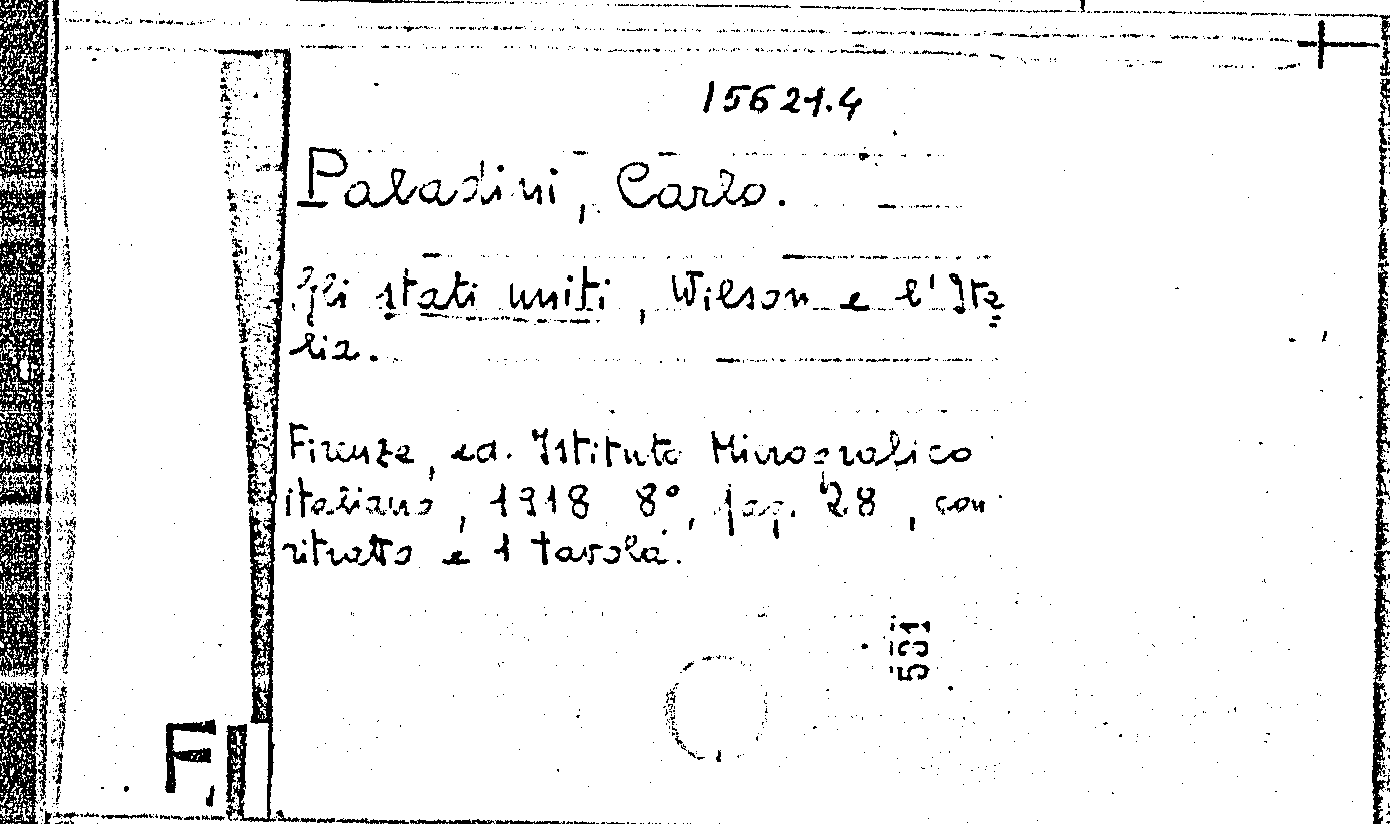 15621.4
Paladini, Carlo.
Gli stati uniti, Wilson e l'Ita=
lia.
Firenze, ed. Istituto Micrografico
italiano, 1918 8°, pag. 28, con
ritratto e 1 tavola.
531
F,